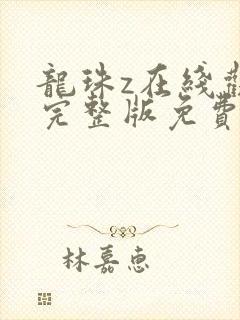 龍珠z在綫
完整版免費
林嘉惠